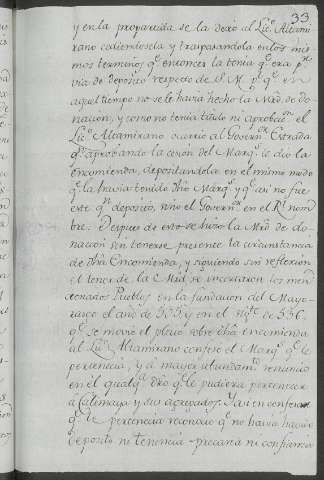 33
y en la propartida se la dexó al Lic.º Altami-
rano cediendosela y traspasandola en los mis-
mos terminos q.e entonces la tenia q.e era p.r
via de deposito respecto de S. M. p.r q.e en
aquel tiempo no se le havia hecho la Mrd. de do-
nacion, y como no tenia titulo ni aprobac.on el
Lic.º Altamirano ocurrió al Govern.or Estrada
q.n aprobando la cesion del Marq.s le dió la
encomienda, depositandola en el mismo modo
q.e la havia tenido dho Marq.s y q.e asi no fue
este q.n depositó, sino el Govern.or en el R.l nom-
bre. Despues de esto se hizo la Mrd. de do-
nacion sin tenerse presente la circunstancia
de dha Encomienda, y siguiendo sin reflexion
el tenor de la Mrd. se incertaron los men-
cionados Pueblos en la fundacion del Mayo-
razgo el año de 535, y en el sig.te de 536.
q.e se movió el pleito sobre dha encomienda
al Lic.º Altamirano confesó el Marq.s q.e le
pertenecia, y á mayor abundam.to renunció
en el qualq.r dro q.e le pudiera pertenecer
a Calimaya y sus agregados. Y asi en confesar
q.e le pertenecia reconoció q.e no havia havido
deposito ni tenencia precaria ni confianza